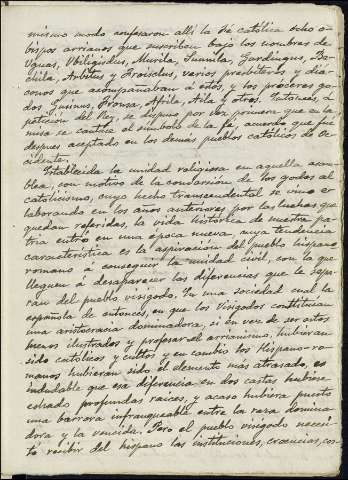 mismo modo confesaron allí la Fé católica ocho o-
bispos arrianos que suscriben bajo los nombres de
Ugnas, Ubiligisclus, Murila, Sunnila, Gardingus, Be-
chila, Arbitus y Froisclus, varios presbíteros y diá-
conos que acompañaban á estos, y los próceres go-
dos Gusinus, Fronsa, Afrila, Aila y otros. Entonces, á
petición del Rey, se dispuso por vez primera que en la
misa se cantase el símbolo de la fé, acuerdo que fué
despues aceptado en los demás pueblos católicos de Oc-
cidente.
Establecida la unidad religiosa en aquella asam-
blea, con motivo de la conversión de los godos al
catolicismo, cuyo hecho transcendental se vino e-
laborando en los años anteriores por las luchas que
quedan referidas, la vida histórica de nuestra pa-
tria entró en una época nueva, cuya tendencia
característica es la aspiración del pueblo hispano
romano á conseguir la unidad civil, con la que
lleguen á desaparecer las diferencias que le sepa-
ran del pueblo visigodo. En una sociedad cual la
española de entonces, en que los visigodos constituían
una aristocracia dominadora, si en vez de ser estos
menos ilustrados y profesar el arrianismo, hubieran
sido católicos y cultos y en cambio los hispano-ro-
manos hubieran sido el elemento más atrasado, es
indudable que esa diferencia en dos castas hubiese
echado profundas raices, y acaso hubiera puesto
una barrera infranqueable entre la raza domina-
dora y la vencida. Pero el pueblo visigodo necesi-
tó recibir del hispano las instituciones, creencias, cos-